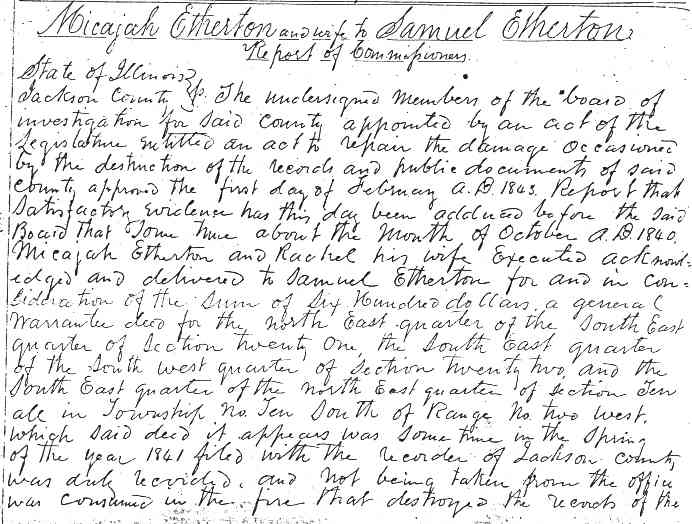 Micajah Etherton and wife to Samuel Etherton
Report of Commissioners.
State of Illinois
Jackson County ss. The undersigned Members of the board of
investigation for said County appointed by an act of the
Legislature Entitled an act to repair the damage Occasioned
by the destruction of the records and public documents of said
County approved the first day of February A.D. 1843. Report that
Satisfactory Evidence has this day been adduced before the Said
Board that Some time about the Month of October A.D. 1840.
Micajah Etherton and Rachel his wife Executed acknowl-
edged and delivered to Samuel Etherton for and in Con-
sideration of the Sum of Six Hundred dollars a general
Warrantee deed for the North East quarter of the South East
quarter of Section twenty One, the South East quarter
of the South west quarter of Section twenty two, and the
South East quarter of the North East quarter of Section Ten
all in Township No. Ten South of Range No. two west.
which said deed it appears was Some time in the Spring
of the year 1841 filed with the recorder of Jackson County
was duly recorded. and not being taken from the office
was consumed in the fire that destroyed the records of the